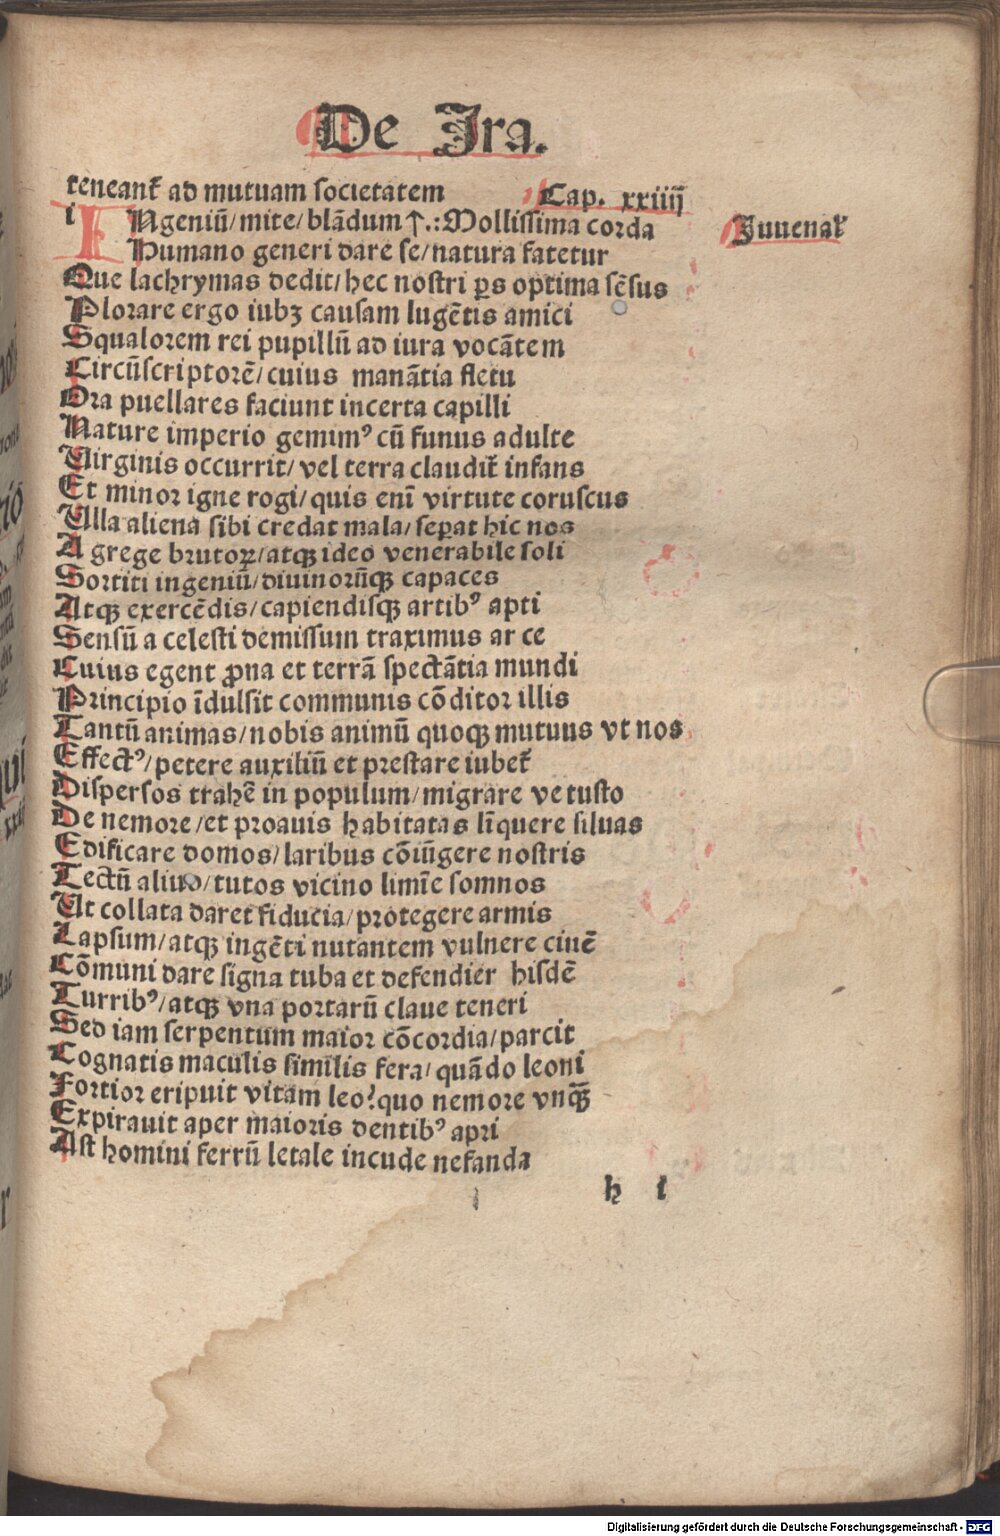 De Ira.
teneant᷑ ad mutuam societatem Cap. xxiiij
i INgeniū/ mite/ blādum ↑.: Mollissima corda Iuuenal᷑
Humano generi dare se/ natura fatetur
Que lachrymas dedit/ hec nostri ꝑs optima sēsus
Plorare ergo iubꝫ causam lugētis amici
Squalorem rei pupillū ad iura vocātem
Circūscriptorē/ cuius manātia fletu
Ora puellares faciunt incerta capilli
Nature imperio gemimꝰ cū funus adulte
Virginis occurrit/ vel terra claudit᷑ infans
Et minor igne rogi/ quis enī virtute coruscus
Vlla aliena sibi credat mala/ seꝑat hic nos
A grege brutoꝝ/ atqꝫ ideo venerabile soli
Sortiti ingeniū/ diuinorūqꝫ capaces
Atqꝫ exercēdis/ capiendisqꝫ artibꝰ apti
Sensū a celesti demissum traximus ar ce
Cuius egent ꝓna et terrā spectātia mundi
Principio īdulsit communis cōditor illis
Tantū animas/ nobis animū quoqꝫ mutuus vt nos
Effectꝰ/ petere auxiliū et prestare iubet᷑
Dispersos trahē in populum/ migrare ve tusto
De nemore/ et proauis habitatas līquere siluas
Edificare domos/ laribus cōiūgere nostris
Tectū aliud/ tutos vicino limīe somnos
Vt collata daret fiducia/ protegere armis
Lapsum/ atqꝫ ingēti nutantem vulnere ciuē
Cōmuni dare signa tuba et defendier hisdē
Turribꝰ/ atqꝫ vna portarū claue teneri
Sed iam serpentum maior cōcordia/ parcit
Cognatis maculis similis fera/ quādo leoni
Fortior eripuit vitam leo? quo nemore vnqꝫ̄
Expirauit aper maioris dentibꝰ apri
Ast homini ferrū letale incude nefanda
h i
Digitalisierung gefördert durch die Deutsche Forschungsgemeinschaft - DFG